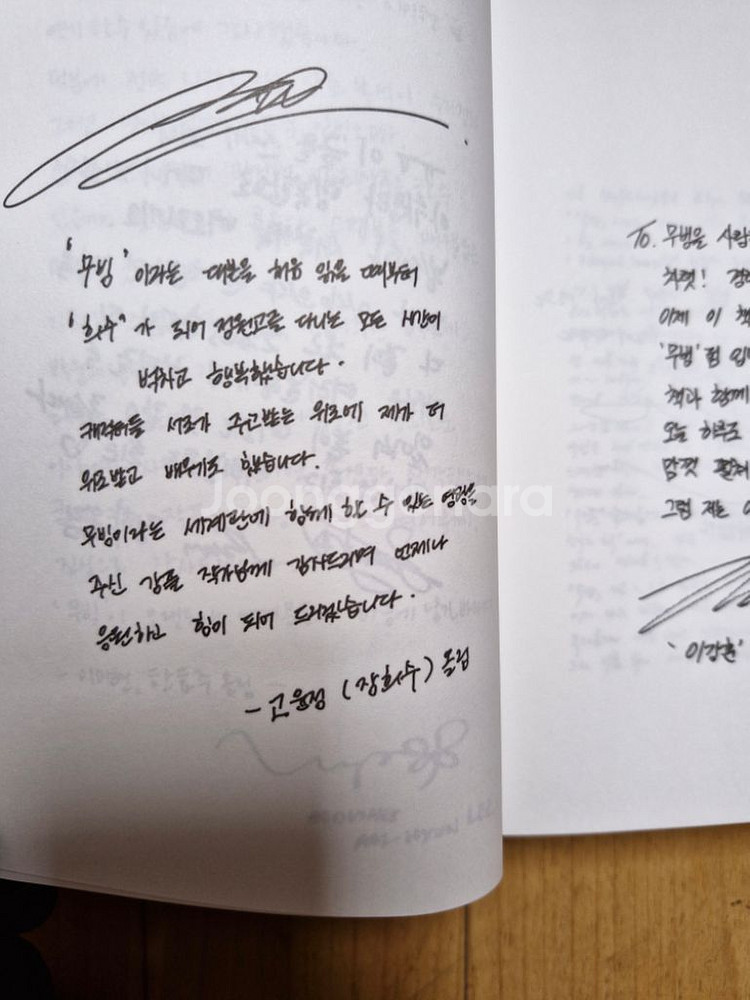 '무빙' 이라는 대본을 처음 읽을 때부터
'희수'가 되어 정원고를 다니는 모든 시간이
벅차고 행복했습니다.
캐릭터들 서로가 주고받는 위로에 제가 더
위로받고 배우기도 했습니다.
무빙이라는 세계관에 함께 할 수 있는 영광을
주신 강풀 작가님께 감사드리며 언제나
응원하고 힘이 되어 드리겠습니다.
- 고윤정 (장희수) 올림
To. 무빙을 사랑
차렷!
이제 이 책
'무빙'
책과 함께
오늘 하루도
맘껏 펼쳐
그럼 저는
'이강훈'
Joonggonara